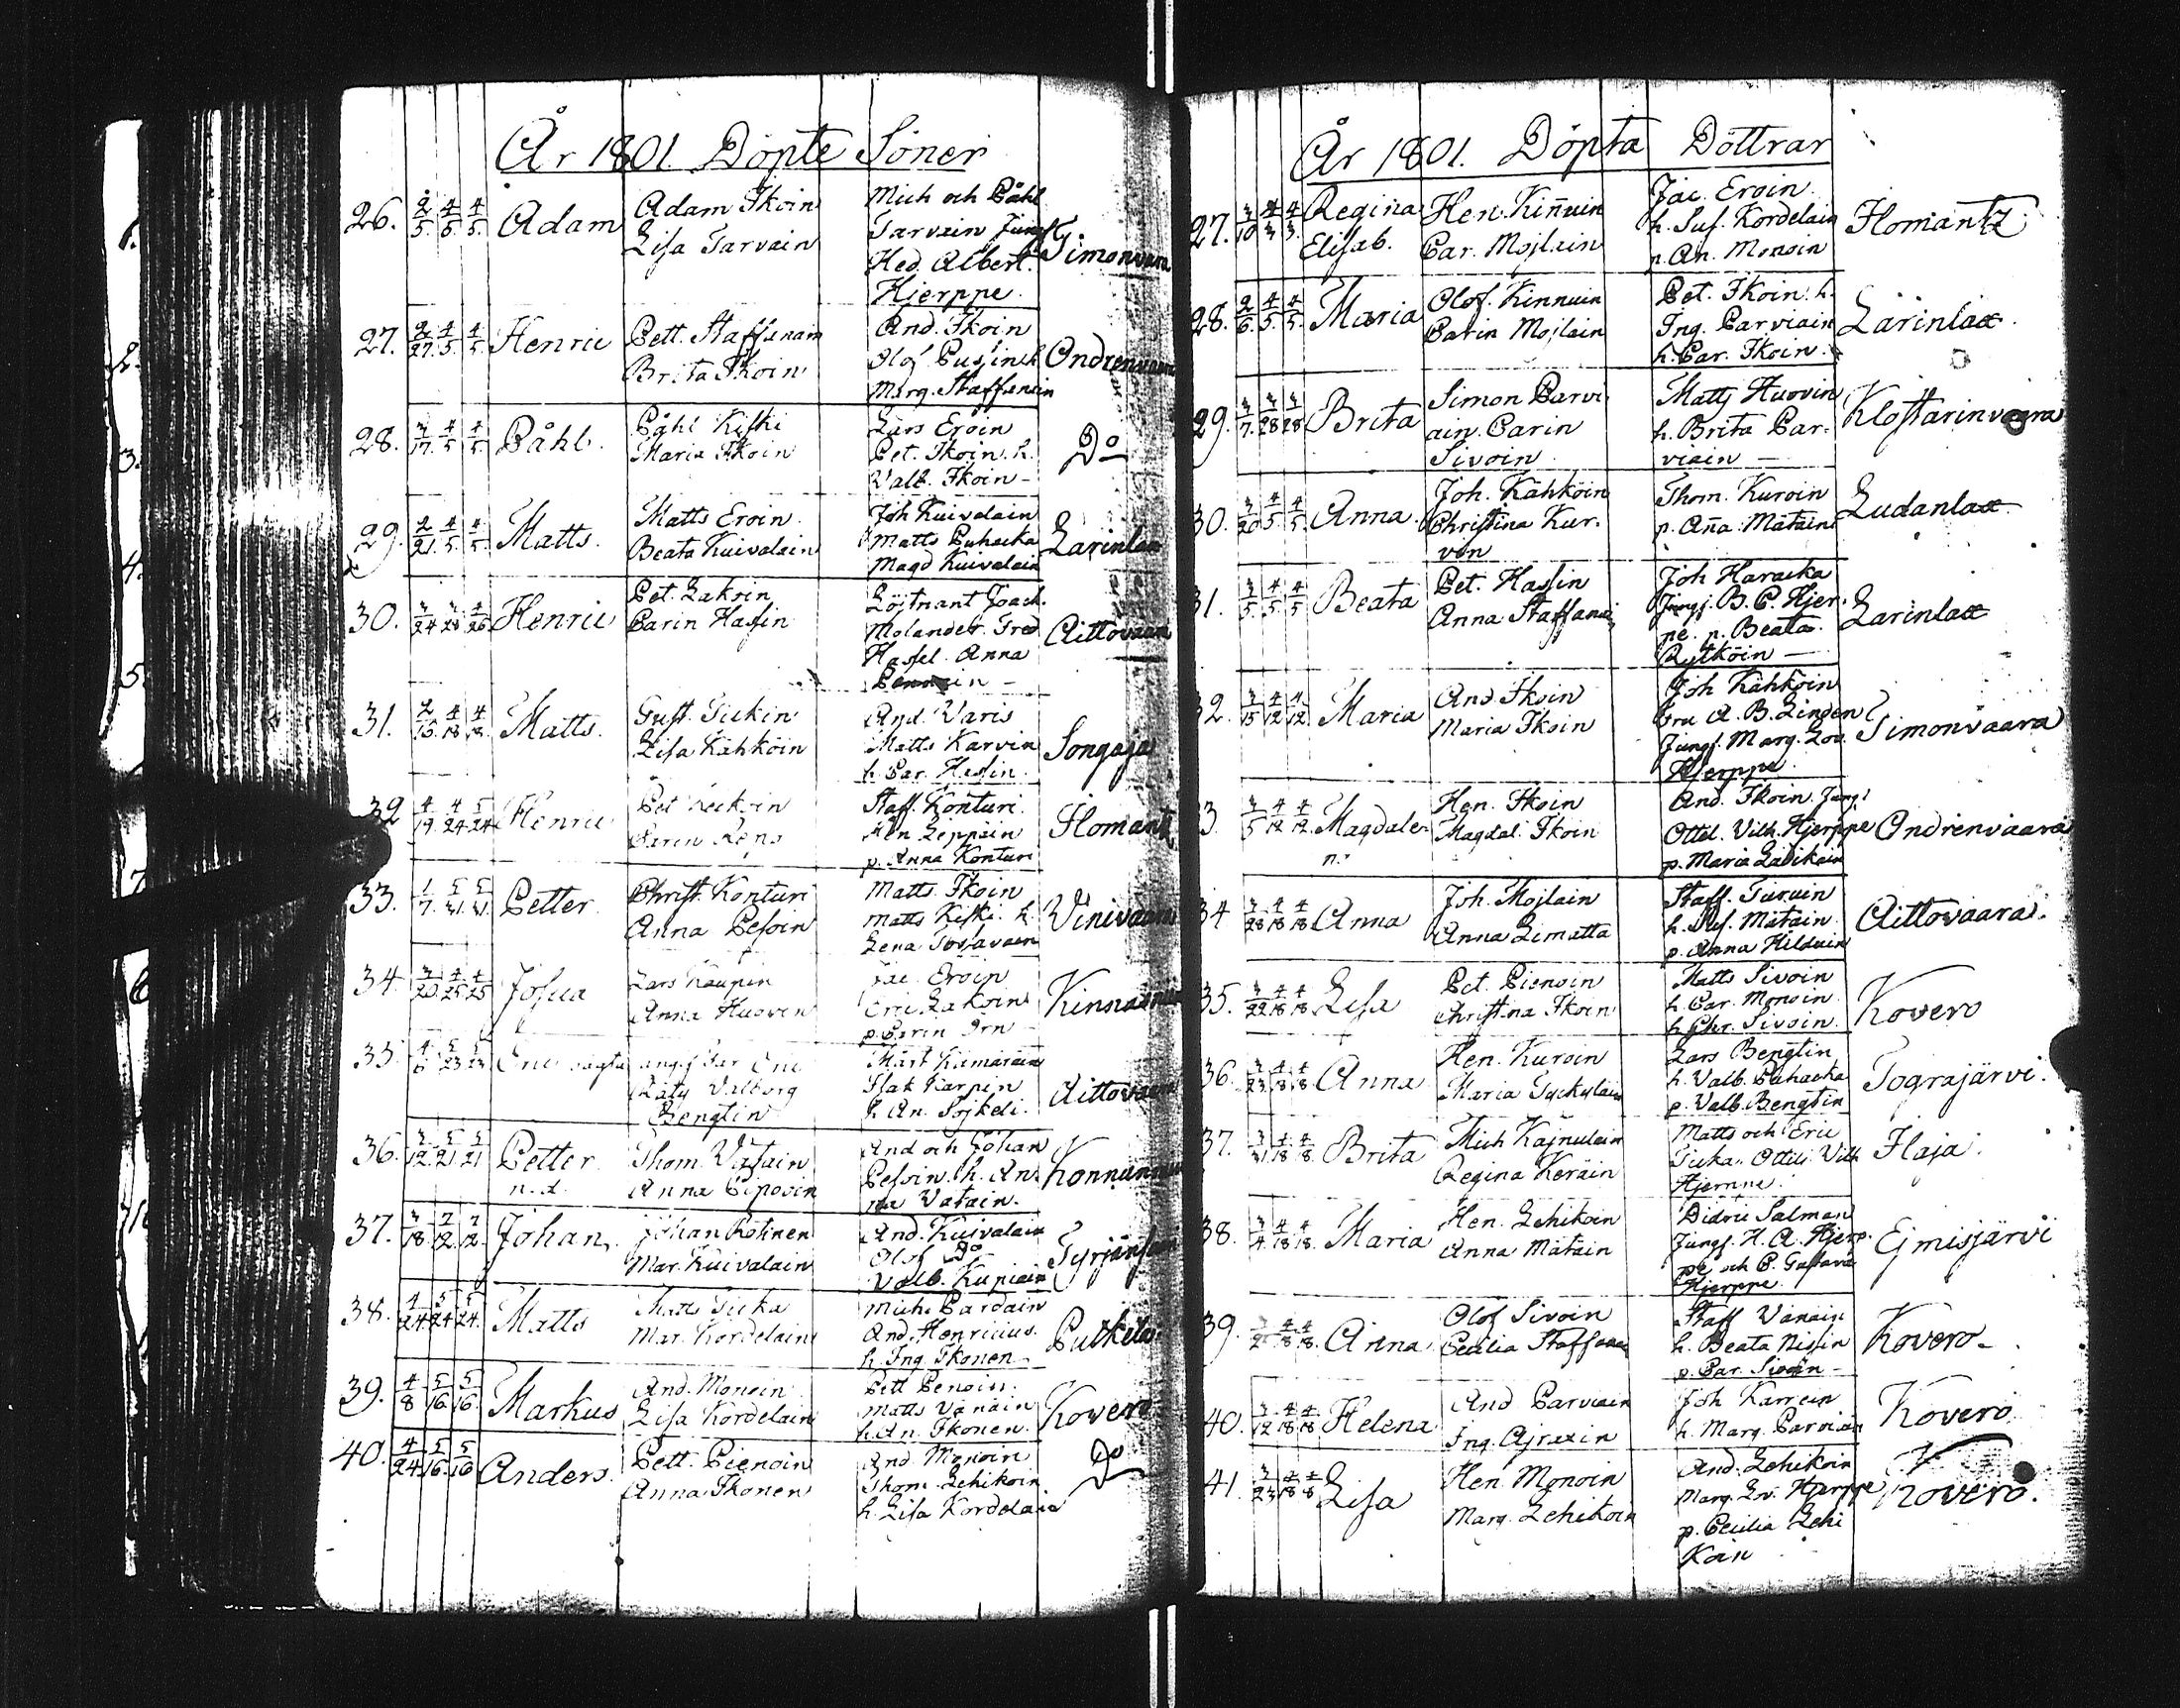 År 1801. Döpte Söner
26. 2/5 4/5 4/5. Adam
Adam Ikoin
Lisa Tarvain
Mich och Påhl
Tarvain Jungf
Hed. Albert.
Hjerppe.
Simonvara
27. 2/27. 4/5. 4/5. Henric
Pett. Staffanain
Brita Ikoin
And. Ikoin
Olof Pussin h
Marg. Staffanain
Ondrenvaara
28. 3/17. 4/5 4/5. Påhl.
Påhl Kiski
Maria Ikoin
Lars Eroin
Pet. Ikoin. h.
Valb. Ikoin -
Do
29. 2/21. 4/5. 4/5. Matts.
Matts Eroin.
Beata Kuivalain
Joh Kuivalain
Matts Puhacka
Magd Kuivalain
Larinlax
30. Henric
Pet. Lakoin
Carin Hassin
Löjtnant Joach.
Molander. Fred.
Hassel. Anna
Aittovaara
31. 4/18 4/18. Matts.
Gust. Tickin
Lisa Kähköin
And. Varis
Matts Karvin
h. Car. Hassin.
Songaja
32 4/19. 4/24 5/24 Henric
Staff. Konturi.
Hen Leppäin
p. Anna Konturi
Ilomants
33. 1/7. 5/31. 5/31. Petter.
Christ. Konturi
Anna Pesoin
Matts Ikoin
Matts Kiski. h.
Lena
Vinivaara
34. 3/20 4/25 4/25 Josua
Lars Kaupin
Anna Huovin
Jac. Eroin
Eric Lakoin
p. Carin Orn
35. 4/6 5/23 5/23 Eric
Räty Valborg
Bengtin
Mårt Kämäräin
Isak Karpin
h. An. Sojkeli.
Aittovaara
36. 3/12. 5/21 5/21 Petter
Thom. Vatain
Anna Piipoin
And och Johan
Pesoin. h. An
na Vatain.
Konnunniemi
37. 3/18. 7/12. 7/12. Johan.
Johan Rötinen
Mar. Kuivalain
And. Kuivalain
Olof Do
Valb. Kupiain
38. 4/24 5/24 5/24. Matts
Matts Ticka
Mar. Kordelain
Mich. Pardain
And. Henricius.
h. Ing Ikonen
Putkela
39. 4/8 5/16. 5/16. Markus
And. Monoin
Lisa Kordelain
Pett Penoin.
Matts Vänäin
h. An. Ikonen.
Kovero
40. 4/24. 5/16. 5/16 Anders.
Pett. Pienoin
Anna Ikonen
And. Monoin
Thom. Lehikoin
h. Lisa Kordelain
Do
År 1801. Döpta Döttrar
27. Regina
Elisab.
Hen. Kiñuin
Car. Mojlain
Jac. Eroin.
h. Sus. Kordelain
p. An. Monoin
Ilomantz
28. 2/6. 4/5. 4/5. Maria
Olof. Kinnuin
Carin Mojlain
Pet. Ikoin. h.
Ing. Parviain
h. Car. Ikoin.
Lärinlax.
29. 3/7. 3/28 3/28 Brita
Simon Parvi
ain. Carin
Sivoin.
Matts Huovin
h. Brita Par-
viain -
Klostarinvaara
30. 3/20 4/5 4/5. Anna.
Joh. Kähköin
Christina Kur-
Thom. Kuroin
p. Aña Mätäin
Ludanlax
31. 3/5. 4/5. 4/5 Beata
Pet. Hassin
Anna Staffanai
Joh Haracka
Jungf. B. C. Hjer-
pe. p. Beata
Rytköin -
Larinlax
32. 3/15 4/12 4/12 Maria
And Ikoin
Maria Ikoin
Joh Kähköin
Fru A. B. Linden
Jungf. Marg. Lov.
Hjerppe.
Simonvaara
33. 3/5 4/12 4/12. Magdale-
na
Hen. Ikoin
Magdal. Ikoin
And. Ikoin. Jungf
Ottil. Vilh. Hjerppe
p. Maria Ladikain
Ondrenvaara
34 3/28 4/18 4/18 Anna
Joh. Mojlain
Anna Limatta
Staff. Turuin
h. Sus. Mätäin.
p. Anna Hilduin
Aittovaara.
35. 3/22 4/18 4/18. Lisa
Pet. Pienoin
Christina Ikoin
Matts Sivoin
h. Car. Monoin.
h. Chr. Sivoin.
Kovero
36. 3/23 4/18 4/18 Anna
Hen. Kuroin
Maria Tyckyläin
Lars Bengtin
h. Valb. Puhacka
p. Valb. Bengtin
Tograjärvi.
37. 3/31 4/18 4/18. Brita
Mich Kajnulain
Regina Keräin
Matts och Eric
Ticka. Ottili Vilh
Hjerppe.
Ilaja.
38. 3/4. 4/18 4/18. Maria
Hen. Lehikoin
Anna Mätäin
Didric Salman
Jungf. H. A. Hjerp-
pe och C. Gustava
Hjerppe.
Ejmisjärvi
39. 4/18 4/18. Anna
Olof Sivoin
Cecilia Staffanai
Staff Vänäin
h. Beata Nissin
p. Car. Sivoin -
Kovero -
40. 3/12 4/18 4/18 Helena
And Parviain
Ing. Ajraxin
Joh Karrein
h. Marg. Parviain
Kovero
41. 3/23 4/18 4/18 Lisa
Hen. Monoin
Marg. Lehikoin
And. Lehikoin
Marg. Lov. Hjerppe
p. Cecilia Lehi
koin
Kovero.